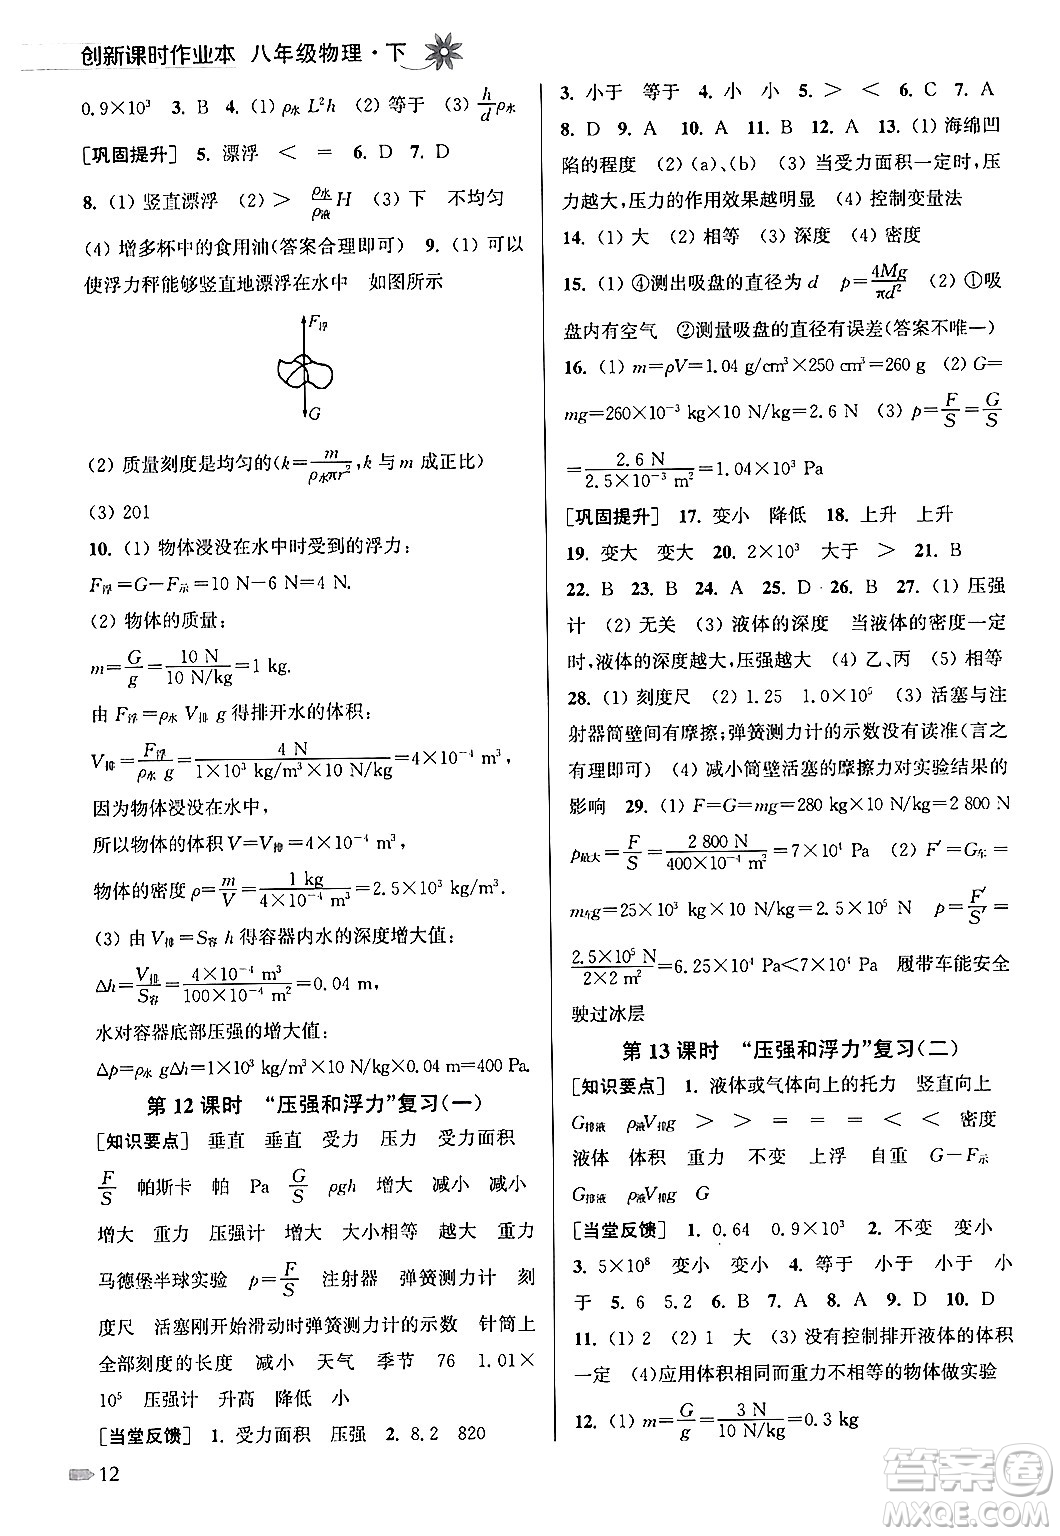 创新课时作业本 八年级物理·下
0.9×10³ 3. B 4. (1) ρ水 L²h (2) 等于 (3) h/d ρ水
[巩固提升] 5. 漂浮 < = 6. D 7. D
8. (1) 竖直漂浮 (2) > ρ水/ρ液 H (3) 下 不均匀
(4) 增多杯中的食用油(答案合理即可) 9. (1) 可以
使浮力秤能够竖直地漂浮在水中 如图所示
F浮
G
(2) 质量刻度是均匀的(k=m/ρ水πr², k 与 m 成正比)
(3) 201
10. (1) 物体浸没在水中时受到的浮力:
F浮=G−F示=10 N−6 N=4 N.
(2) 物体的质量:
m=G/g=10 N/10 N/kg=1 kg.
由 F浮=ρ水 V排 g 得排开水的体积:
V排=F浮/ρ水 g=4 N/1×10³ kg/m³×10 N/kg=4×10⁻⁴ m³
因为物体浸没在水中,
所以物体的体积 V=V排=4×10⁻⁴ m³,
物体的密度 ρ=m/V=1 kg/4×10⁻⁴ m³=2.5×10³ kg/m³.
(3) 由 V排=S容 h 得容器内水的深度增大值:
Δh=V排/S容=4×10⁻⁴ m³/100×10⁻⁴ m²=0.04 m,
水对容器底部压强的增大值:
Δp=ρ水 gΔh=1×10³ kg/m³×10 N/kg×0.04 m=400 Pa.
第 12 课时 “压强和浮力”复习(一)
[知识要点] 垂直 垂直 受力 压力 受力面积
F/S 帕斯卡 帕 Pa G/S ρgh 增大 减小 减小
增大 重力 压强计 增大 大小相等 越大 重力
马德堡半球实验 p=F/S 注射器 弹簧测力计 刻
度尺 活塞刚开始滑动时弹簧测力计的示数 针筒上
全部刻度的长度 减小 天气 季节 76 1.01×
10⁵ 压强计 升高 降低 小
[当堂反馈] 1. 受力面积 压强 2. 8.2 820
12
3. 小于 等于 4. 小 小 5. > < 6. C 7. A
8. D 9. A 10. A 11. B 12. A 13. (1) 海绵凹
陷的程度 (2) (a)、(b) (3) 当受力面积一定时,压
力越大,压力的作用效果越明显 (4) 控制变量法
14. (1) 大 (2) 相等 (3) 深度 (4) 密度
15. (1) ④测出吸盘的直径为 d p=4Mg/πd² (2) ①吸
盘内有空气 ②测量吸盘的直径有误差(答案不唯一)
16. (1) m=ρV=1.04 g/cm³×250 cm³=260 g (2) G=
mg=260×10⁻³ kg×10 N/kg=2.6 N (3) p=F/S=G/S
=2.6 N/2.5×10⁻³ m²=1.04×10³ Pa
[巩固提升] 17. 变小 降低 18. 上升 上升
19. 变大 变大 20. 2×10³ 大于 > 21. B
22. B 23. B 24. A 25. D 26. B 27. (1) 压强
计 (2) 无关 (3) 液体的深度 当液体的密度一定
时,液体的深度越大,压强越大 (4) 乙、丙 (5) 相等
28. (1) 刻度尺 (2) 1.25 1.0×10⁵ (3) 活塞与注
射器筒壁间有摩擦;弹簧测力计的示数没有读准(言之
有理即可) (4) 减小筒壁活塞的摩擦力对实验结果的
影响 29. (1) F=G=mg=280 kg×10 N/kg=2 800 N
p最大=F/S=2 800 N/400×10⁻⁴ m²=7×10⁴ Pa (2) F′=G车=
m车g=25×10³ kg×10 N/kg=2.5×10⁵ N p=F′/S′=
2.5×10⁵ N/2×2 m²=6.25×10⁴ Pa<7×10⁴ Pa 履带车能安全
驶过冰层
第 13 课时 “压强和浮力”复习(二)
[知识要点] 1. 液体或气体向上的托力 竖直向上
G排液 ρ液V排g > > = = = < < 密度
液体 体积 重力 不变 上浮 自重 G−F示
G排液 ρ液V排g G
[当堂反馈] 1. 0.64 0.9×10³ 2. 不变 变小
3. 5×10⁸ 变小 变小 4. 等于 小于 小于 小
于 5. 6 5.2 6. B 7. A 8. A 9. D 10. D
11. (1) 2 (2) 1 大 (3) 没有控制排开液体的体积
一定 (4)应用体积相同而重力不相等的物体做实验
12. (1) m=G/g=3 N/10 N/kg=0.3 kg
答案圈
MXQE.COM